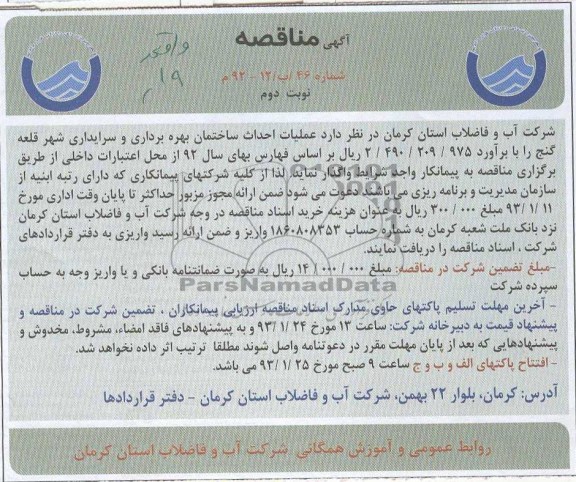 آگهی مناقصه
شماره ۴۶ /ب/۱۲ - ۹۲ م
نوبت دوم
شرکت آب و فاضلاب استان کرمان در نظر دارد عملیات احداث ساختمان بهره برداری و سرایداری شهر قلعه
گنج را با برآورد ۹۷۵ / ۲۰۹ / ۴۹۰ / ۲ ریال بر اساس فهارس بهای سال ۹۲ از محل اعتبارات داخلی از طریق
برگزاری مناقصه به پیمانکار واجد شرایط واگذار نماید. لذا از کلیه شرکتهای پیمانکاری که دارای رتبه ابنیه از
سازمان مدیریت و برنامه ریزی می باشند دعوت می شود ضمن ارائه مجوز مزبور حداکثر تا پایان وقت اداری مورخ
۱۱ /۹۳/۱ مبلغ ۳۰۰/۰۰۰ ریال به عنوان هزینه خرید اسناد مناقصه در وجه شرکت آب و فاضلاب استان کرمان
نزد بانک ملت شعبه کرمان به شماره حساب ۱۸۶۰۸۰۸۳۵۳ واریز و ضمن ارائه رسید واریزی به دفتر قراردادهای
شرکت ، اسناد مناقصه را دریافت نمایند.
-مبلغ تضمین شرکت در مناقصه: مبلغ ۱۴/۰۰۰/۰۰۰ ریال به صورت ضمانتنامه بانکی و یا واریز وجه به حساب
سپرده شرکت
- آخرین مهلت تسلیم پاکتهای حاوی مدارک اسناد مناقصه ارزیابی پیمانکاران ، تضمین شرکت در مناقصه و
پیشنهاد قیمت به دبیرخانه شرکت: ساعت ۱۳ مورخ ۲۴ /۱ /۹۳ و به پیشنهادهای فاقد امضاء، مشروط، مخدوش و
پیشنهادهایی که بعد از پایان مهلت مقرر در دعوتنامه واصل شوند مطلقا ترتیب اثر داده نخواهد شد.
- افتتاح پاکتهای الف و ب و ج ساعت ۹ صبح مورخ ۲۵ /۹۳/۱ می باشد.
آدرس: کرمان، بلوار ۲۲ بهمن، شرکت آب و فاضلاب استان کرمان - دفتر قراردادها
روابط عمومی و آموزش همگانی شرکت آب و فاضلاب استان کرمان
ParsNamadData